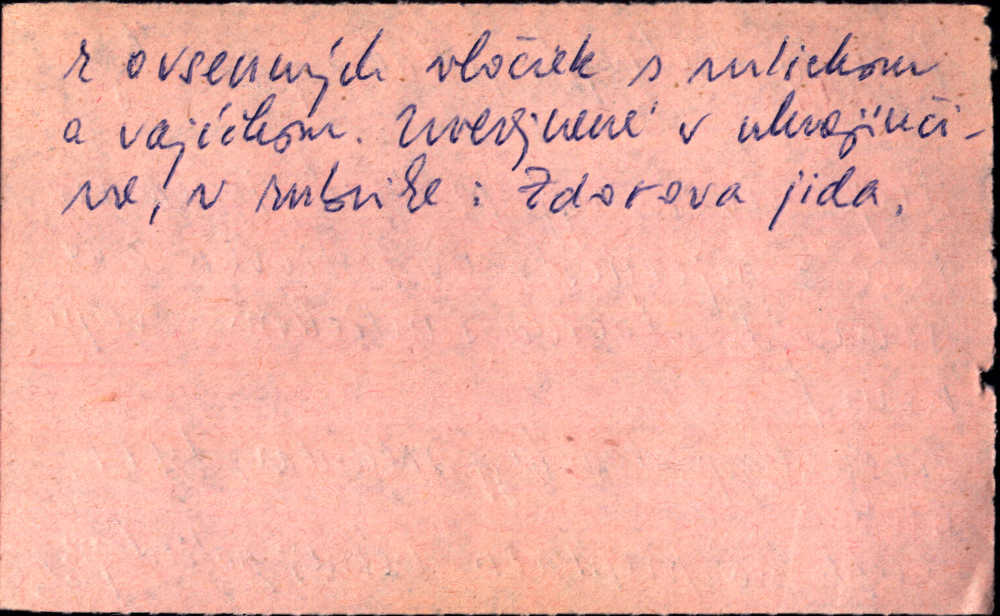 z ovsenných vločiek s mliekom
a vajíčkom. Uverejnené v ukrajinči-
ne, v rubrike: Zdorova jida.